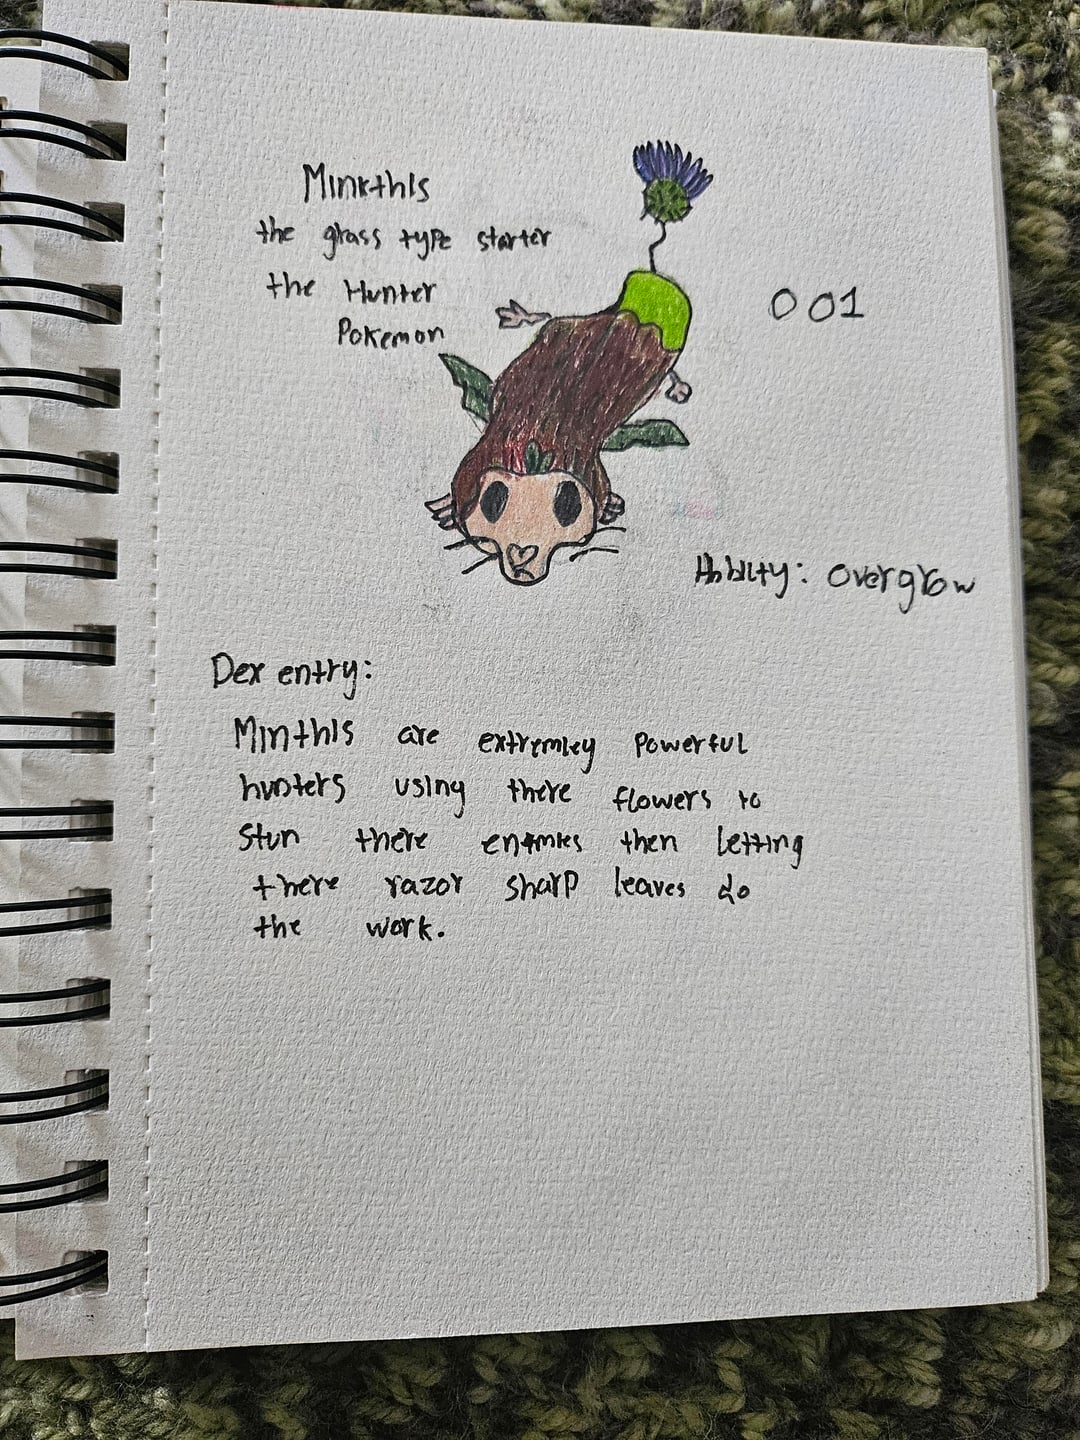 Minkthis
the grass type starter
the Hunter
Pokemon
001
Abbility: overgrow
Dex entry:
Minthis are extremley powerful
hunters using there flowers to
stun there enemies then letting
there razor sharp leaves do
the work.